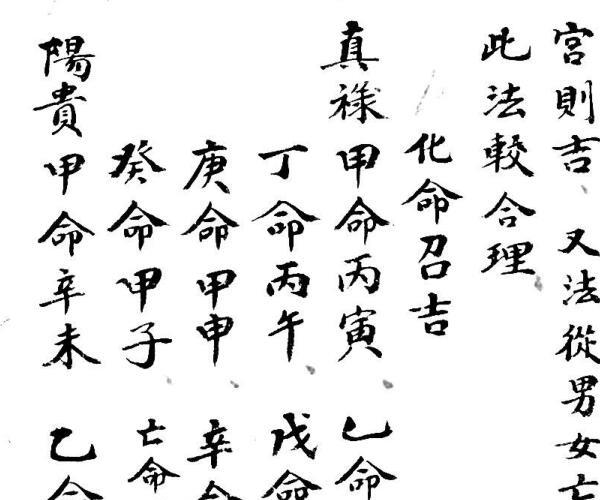 宮則吉 又法從男女亡
此法較合理
化命召吉
真祿甲命丙寅 乙命
丁命丙午 戊命
庚命甲申 辛命
癸命甲子 亡命
陽貴甲命辛未 乙命